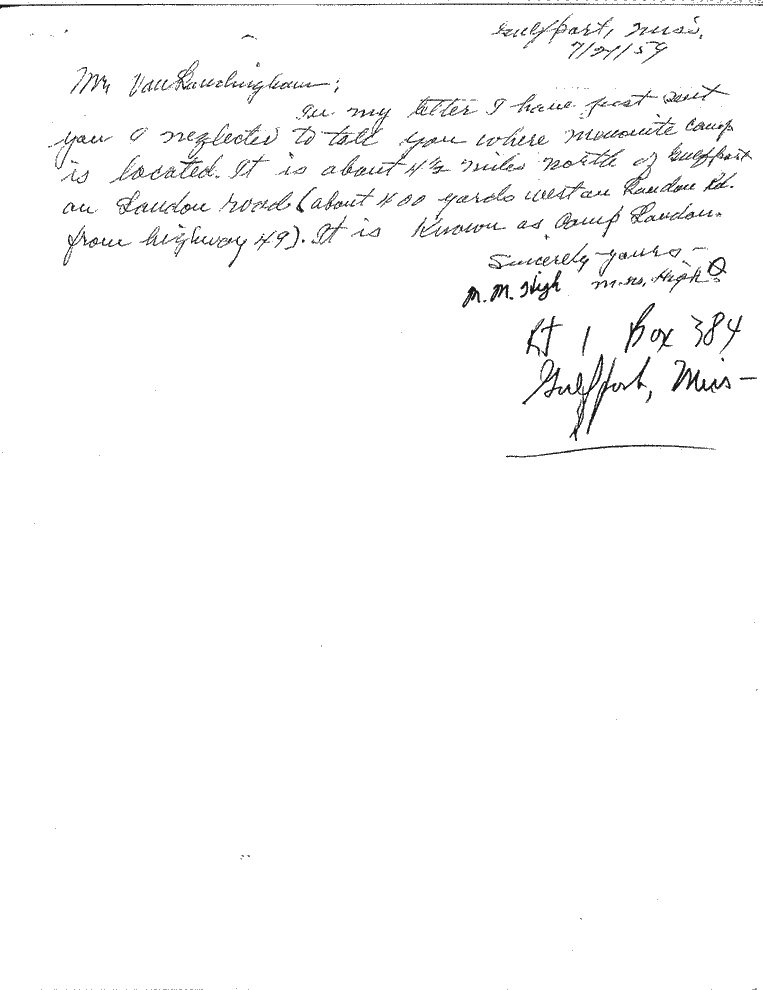 Gulfport, Miss.
7/21/59
Mr. VanLandingham:
In my letter I have just sent
you I neglected to tell you where mennonite camp
is located. It is about 4½ miles north of Gulfport
on Landon road (about 400 yards west on Landon Rd.
from highway 49). It is known as Camp Landon.
Sincerely yours -
M. M. High Mrs. High
Rt 1 Box 384
Gulfport, Miss -